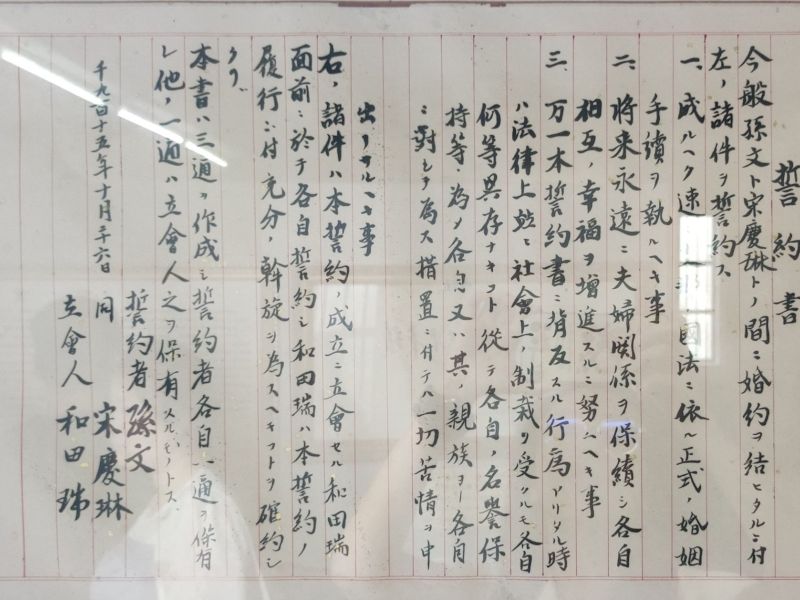 誓約書
今般孫文ト宋慶琳トノ間ニ婚約ヲ結ヒタルニ付
左ノ諸件ヲ誓約ス
一、成ルヘク速 國法ニ依ル正式ノ婚姻
手續ヲ執ルヘキ事
二、将来永遠ニ夫婦関係ヲ保續シ各自
相互ノ幸福ヲ増進スルニ努ムヘキ事
三、万一本誓約書ニ背反スル行為アリタル時
ハ法律上並ニ社會上ノ制裁ヲ受クルモ各自
何等異存ナキコト從テ各自ノ名譽保
持等ノ為メ各自又ハ其ノ親族ヨリ各自
ニ對シテ為ス措置ニ付テハ一切苦情ヲ申
出サルヘキ事
右ノ諸件ハ本誓約ノ成立ニ立會セル和田瑞
面前ニ於テ各自誓約シ和田瑞ハ本誓約ノ
履行ニ付充分ノ斡旋ヲ為スヘキコトヲ確約シ
タリ
本書ハ三通ヲ作成シ誓約者各自一通ヲ保有
シ他ノ一通ハ立會人之ヲ保有スルモノトス
千九百十五年十月二十六日
誓約者 孫文
同 宋慶琳
立會人 和田瑞